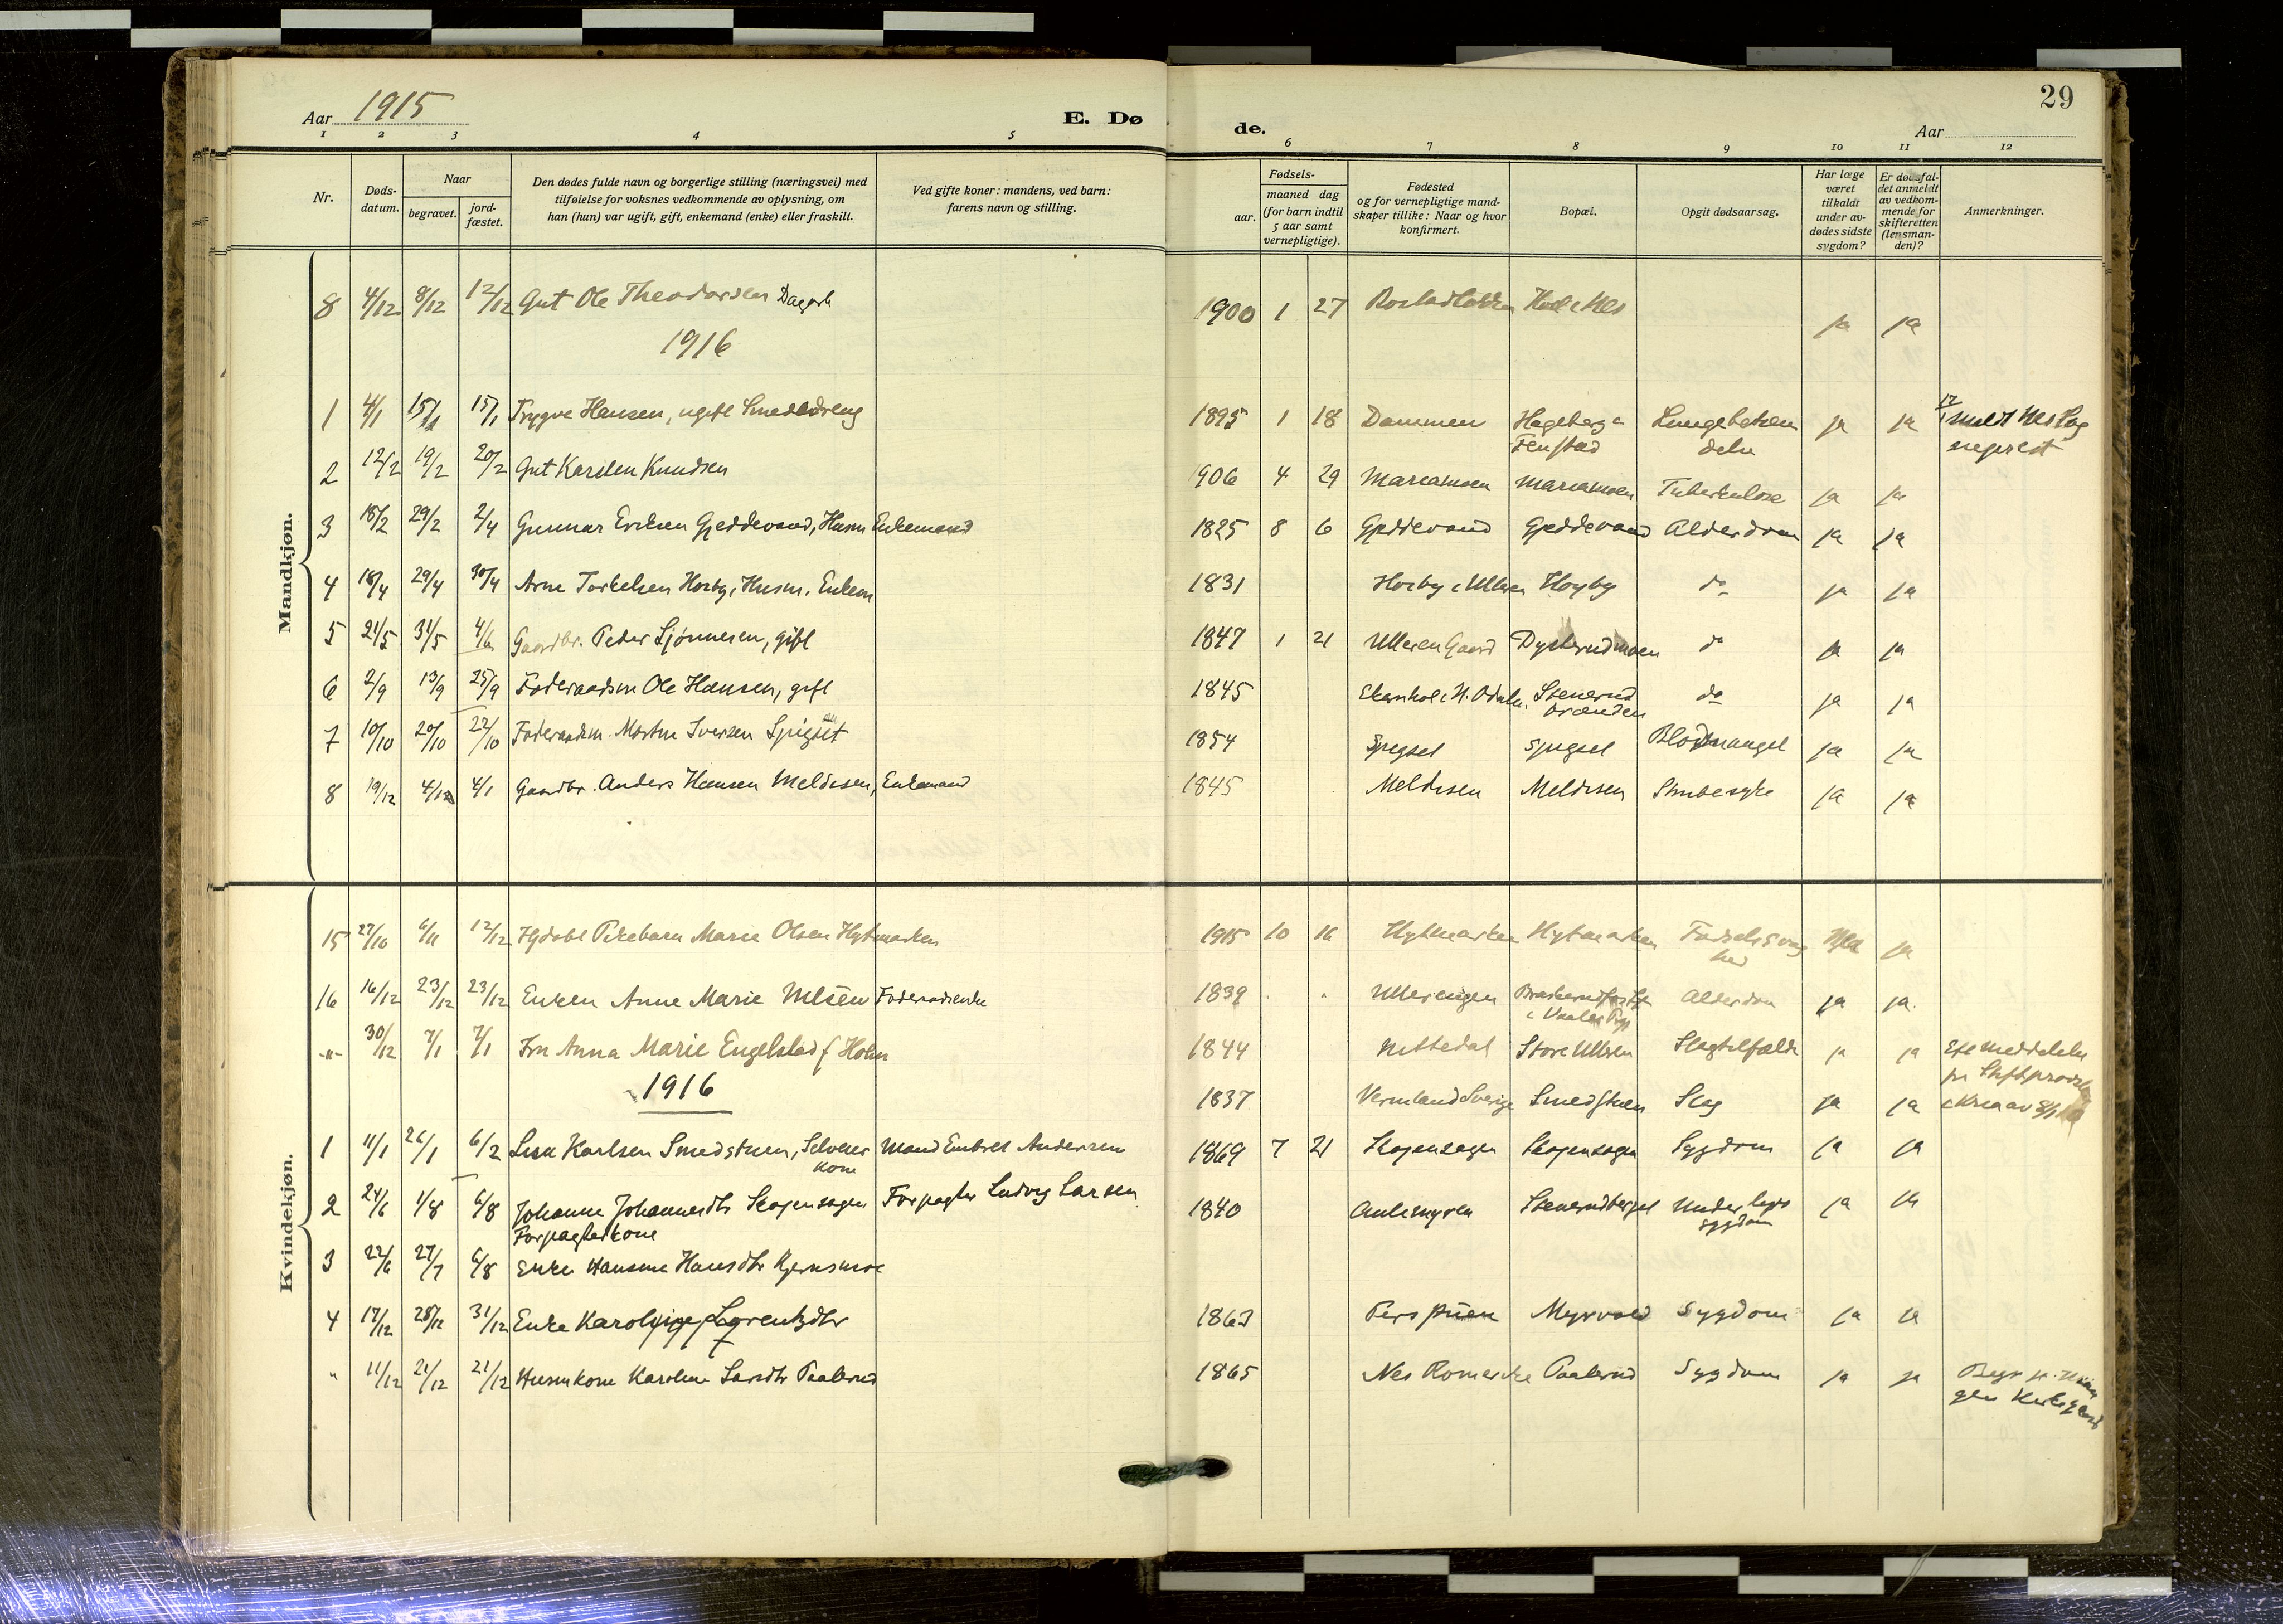 Aar 1915
E. Dø
de.
Aar
29
1 2 3 4 5 6 7 8 9 10 11 12
Nr.
Døds-
datum.
Naar
begravet.
jord-
fæstet.
Den dødes fulde navn og borgerlige stilling (næringsvei) med
tilføielse for voksnes vedkommende av oplysning, om
han (hun) var ugift, gift, enkemand (enke) eller fraskilt.
Ved gifte koner: mandens, ved barn:
farens navn og stilling.
Fødsels-
aar.
maaned dag
(for barn indtil
5 aar samt
vernepligtige).
Fødested
og for vernepligtige mand-
skaper tillike: Naar og hvor
konfirmert.
Bopæl.
Opgit dødsaarsag.
Har læge
været
tilkaldt
under av-
dødes sidste
sygdom?
Er dødsfal-
det anmeldt
av vedkom-
mende for
skifteretten
(lensman-
den)?
Anmerkninger.
Mandkjøn.
8 4/12 8/12 12/12 Gut Ole Theodorsen 1900 1 27 ja ja
1916
1 4/1 15/1 15/1 Trygve Hansen, ugift 1895 1 18 Dammen Hageberg ja ja
Fenstad
2 12/2 19/2 20/2 Gut Karsten Knudsen 906 4 29 Mariamoen Mariamoen Tuberkulose ja ja
3 18/2 29/2 2/4 Gunnar Eriksen Gjeddevand, Husm Enkemand 1825 8 6 Gjeddevand Gjeddevand Alderdom ja ja
4 18/4 29/4 30/4 Arne Torkelsen Horby, Husm. Enkem 1831 do ja ja
5 21/5 31/5 4/6 Gaardbr. Peder Sjønnesen, gift 1847 1 21 Ulleren Gaard Dysterudmoen do ja ja
6 2/9 13/9 25/9 Føderaadsm Ole Hansen, gift 1845 Stenerud do ja ja
brænden
7 10/10 20/10 22/10 Føderaadsm. Martin Iversen 1854 Blodmangel ja ja
8 19/12 4/1 4/1 Gaardbr. Anders Hansen Meldisen, Enkemand 1845 Meldisen Meldisen ja ja
Kvindekjøn.
15 27/10 6/11 12/12 Pikebarn Marie Olsen Hytmarken 1915 10 16 Hytmarken Hytmarken ja
16 16/12 23/12 23/12 Enken Anne Marie Føderaadsenke 1839 Ullerengen Alderdom ja ja.
-"- 30/12 7/1 7/1 Fru Anna Marie Engelstad f Holm 1844 Nittedal Store Ulleren ja ja
1916
1837 Smedstuen Slag ja ja
1 11/1 26/1 6/2 Lisa Karlsen Smedstuen, Selveier Mand Embret Andersen 1869 7 21 Skogensagen Skogensagen Sygdom ja ja
kone
2 24/6 1/8 6/8 Johanne Johannesdtr Skogensagen Forpagter Ludvig Larsen 1840 Stenerudberget Underlivs ja ja
Forpagterkone sygdom
3 22/6 27/7 6/8 Enke Hansine Hansdtr
4 17/12 28/12 31/12 Enke Karoline Lorentzdtr 1863 Myrvold Sygdom ja ja
" 11/12 21/12 21/12 Husmkone Karoline Paalerud 1865 Nes Romerike Paalerud Sygdom ja ja